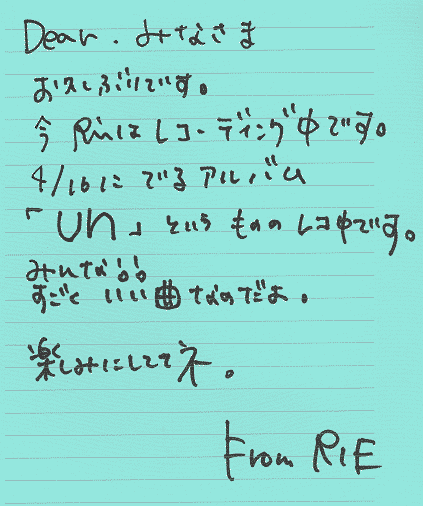 Dear. みなさま
お久しぶりです。
今 Rieはレコーディング中です。
4/16にでるアルバム
「un」というもののレコ中です。
みんな!!
すごくいい曲なのだよ。
楽しみにしててネ。
From RIE